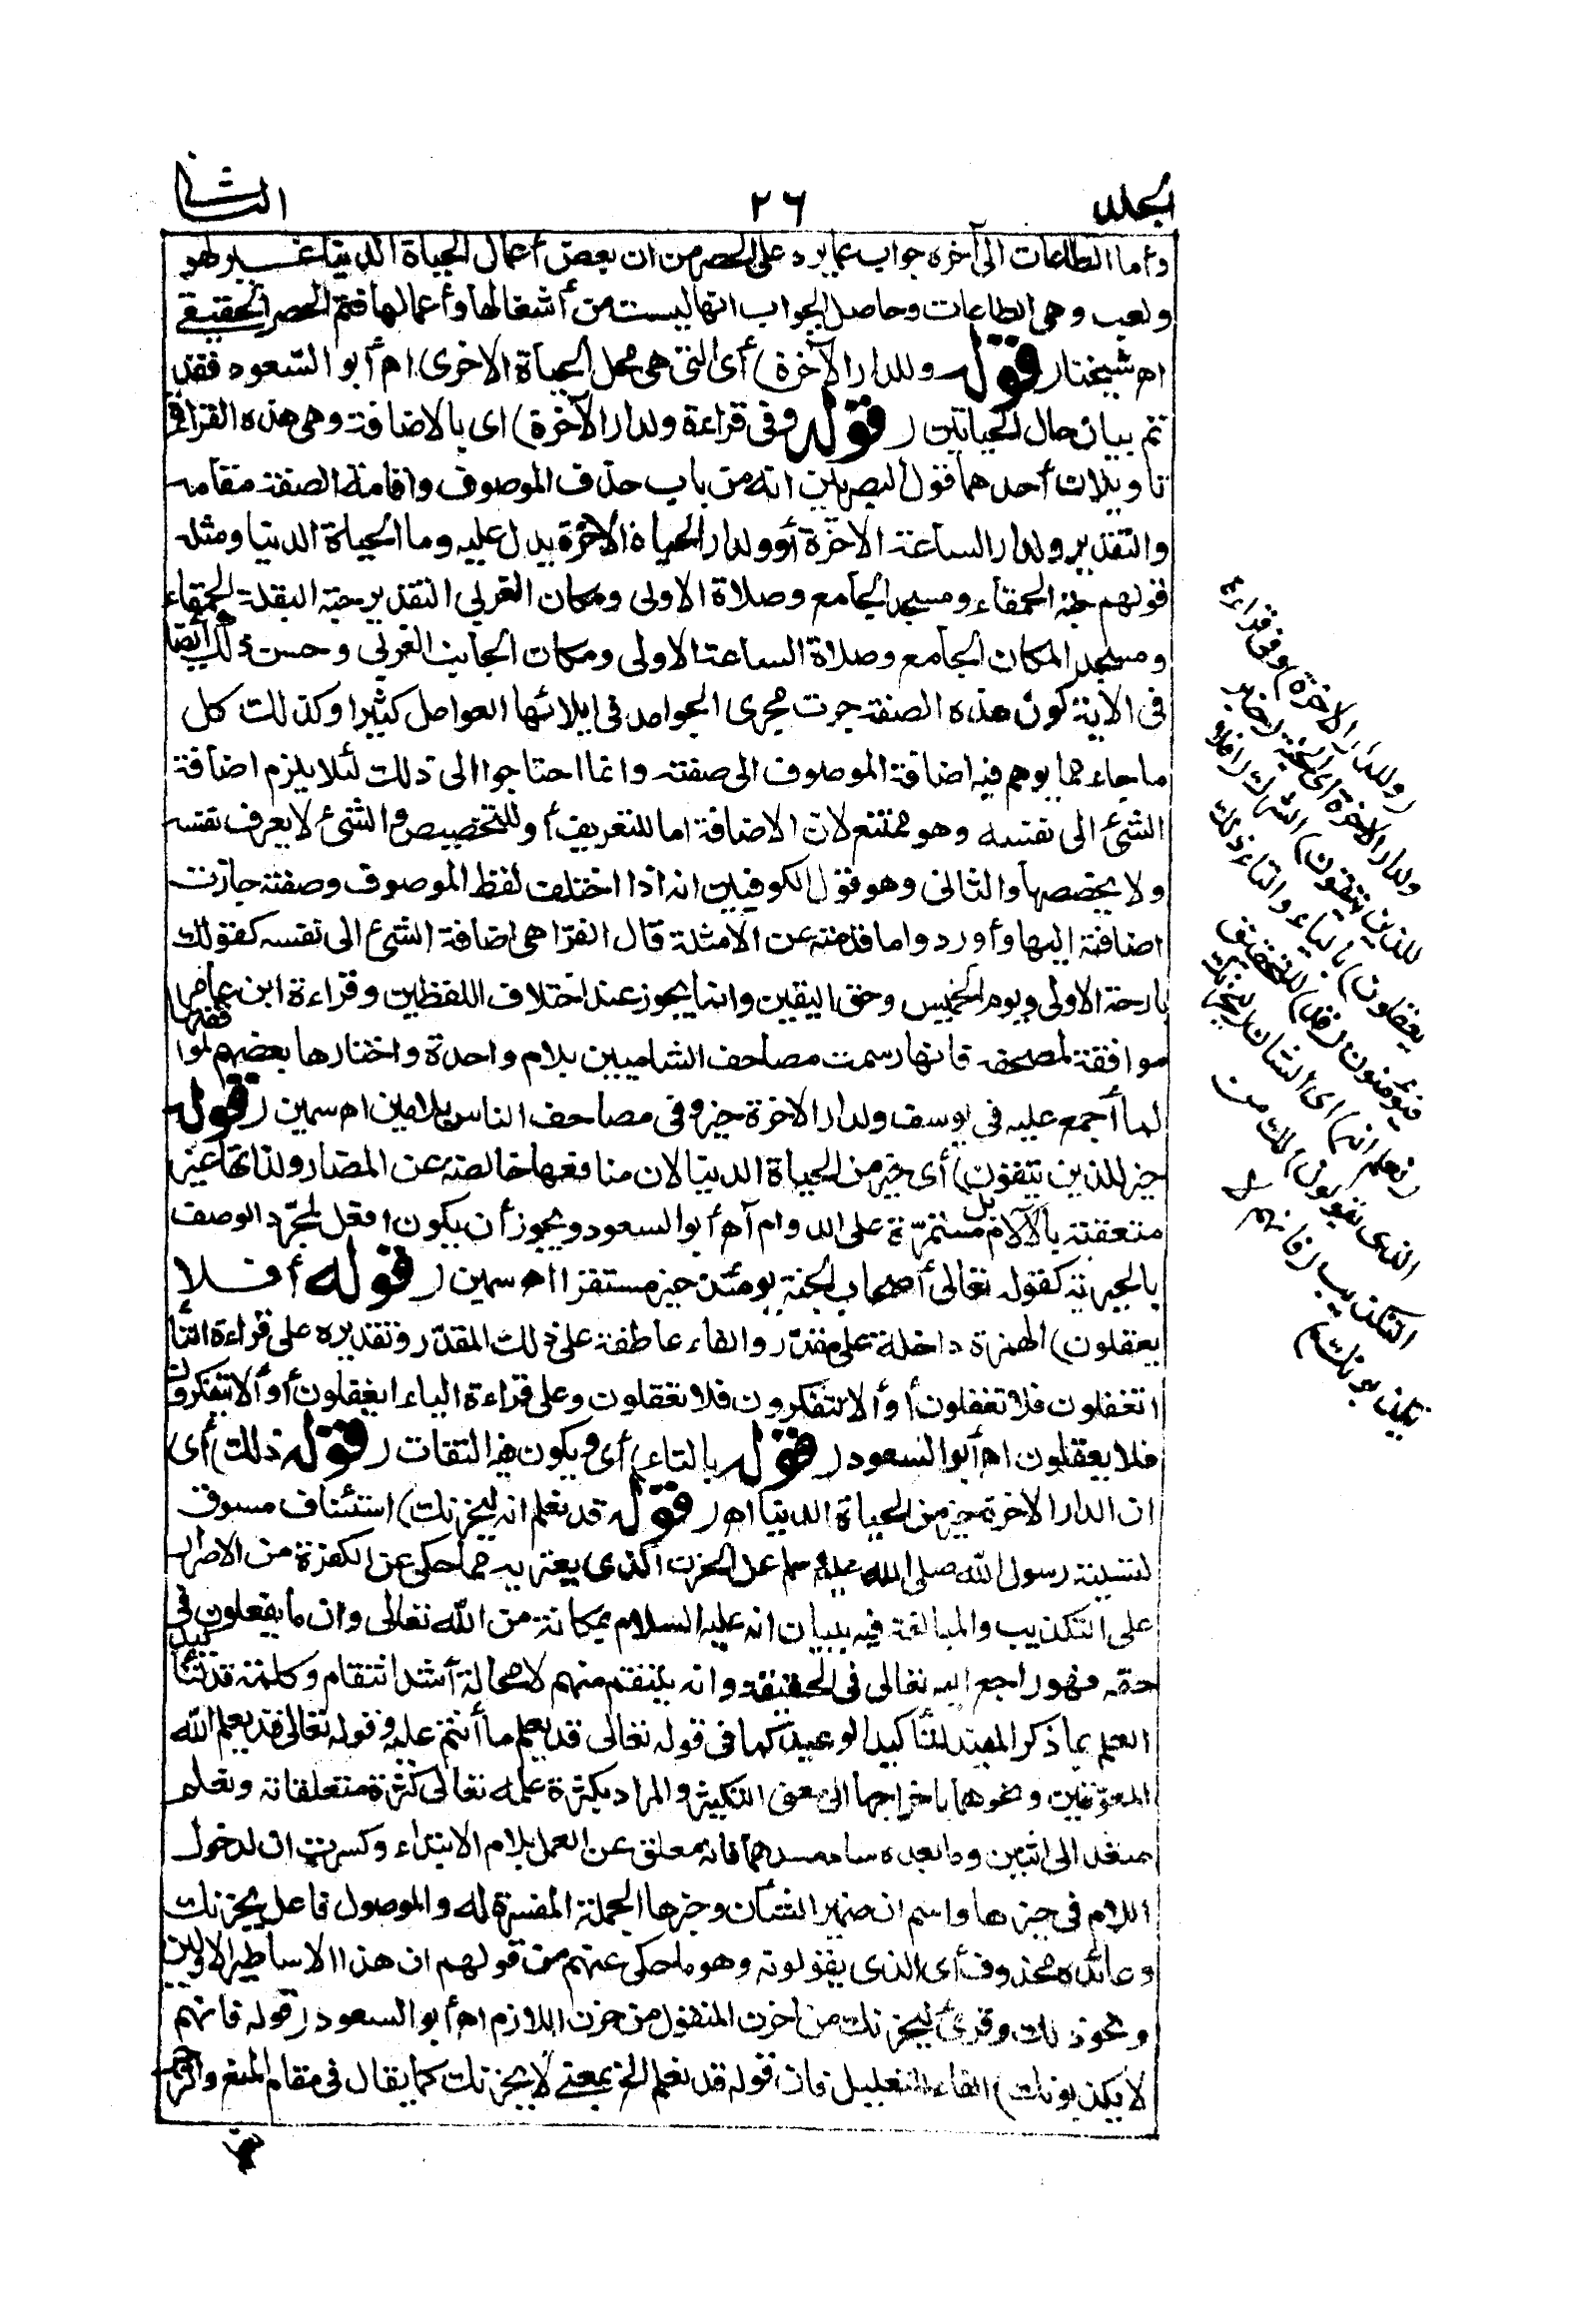 الجلد ٢٦ الثاني
وأما الطاعات الى آخره جواب عما يرد على الحصر من ان بعض أعمال الحياة الدنيا غير لهو
ولعب وهى الطاعات وحاصل الجواب انها ليست من أشغالها وأعمالها فتم الحصر الحقيقى
اه شيخنا (قوله وللدار الآخرة) أى التى هى محل الحياة الاخرى اه أبو السعود فقد
تم بيان حال الحياتين (قوله وفى قراءة ولدار الآخرة) اى بالاضافة وفى هذه القراءة
تأويلان أحدهما قول البصريين انه من باب حذف الموصوف واقامة الصفة مقامه
والتقدير ولدار الساعة الاخرة أو ولدار الحياة الاخرة يدل عليه وما الحياة الدنيا ومثله
قولهم حبة الحمقاء ومسجد الجامع وصلاة الاولى ومكان الغربى التقدير حبة البقلة الحمقاء
ومسجد المكان الجامع وصلاة الساعة الاولى ومكان الجانب الغربى وحسن ذلك أيضا
فى الآية كون هذه الصفة جرت مجرى الجوامد فى ايلائها العوامل كثيرا وكذلك كل
ما جاء مما يوهم فيه اضافة الموصوف الى صفته وانما احتاجوا الى ذلك لئلا يلزم اضافة
الشئ الى نفسه وهو ممتنع لان الاضافة اما للتعريف أو للتخصيص والشئ لا يعرف نفسه
ولا يخصصها والثانى وهو قول الكوفيين انه اذا اختلف لفظ الموصوف وصفته جازت
اضافته اليها وأوردوا ما قدمته من الامثلة قال الفرا هى اضافة الشئ الى نفسه كقولك
بارحة الاولى ويوم الخميس وحق اليقين وانما يجوز عند اختلاف اللفظين وقراءة ابن عامر
موافقة لمصحفه فانها رسمت مصاحف الشاميين بلام واحدة واختارها بعضهم لموافقتها
لما أجمع عليه فى يوسف ولدار الاخرة خير وفى مصاحف الناس بلامين اه سمين (قوله
خير للذين يتقون) أى خير من الحياة الدنيا لان منافعها خالصة عن المضار ولذاتها غير
متعقبة بالآلام بل مستمرة على الدوام اه أبو السعود ويجوز أن يكون افعل لمجرد الوصف
بالخيرية كقوله تعالى أصحاب الجنة يومئذ خير مستقرا اه سمين (قوله أفلا
يعقلون) الهمزة داخلة على مقدر والفاء عاطفة على ذلك المقدر وتقديره على قراءة التا
اتغفلون فلا تعقلون أو ألا تتفكرون فلا تعقلون وعلى قراءة الياء ايغفلون أو ألا يتفكرون
فلا يعقلون اه أبو السعود (قوله بالتاء) أى ويكون فيه التفات (قوله ذلك) أى
ان الدار الاخرة خير من الحياة الدنيا اه (قوله قد نعلم انه ليحزنك) استئناف مسوق
لتسلية رسول الله صلى الله عليه وسلم عن الحزن الذى يعتريه مما حكى عن الكفرة من الاصرار
على التكذيب والمبالغة فيه ببيان انه عليه السلام بمكانة من الله تعالى وان ما يفعلون فى
حقه فهو راجع اليه تعالى فى الحقيقة وانه ينتقم منهم لا محالة أشد انتقام وكلمة قد لتأكيد
العلم بما ذكر المفيد لتأكيد الوعيد كما فى قوله تعالى قد يعلم ما أنتم عليه وقوله تعالى قد يعلم الله
المعوقين ونحوهما باخراجها الى معنى التكثير والمراد بكثرة علمه تعالى كثرة متعلقاته ونعلم
متعد الى اثنين وما بعده ساد مسدهما فانه معلق عن العمل بلام الابتداء وكسرت ان لدخول
اللام فى خبرها واسم ان ضمير الشأن وخبرها الجملة المفسرة له والموصول فاعل يحزنك
وعائده محذوف أى الذى يقولونه وهو ما حكى عنهم من قولهم ان هذا الا أساطير الاولين
ونحو ذلك وقرئ ليحزنك من احزن المنقول من حزن اللازم اه أبو السعود (قوله فانهم
لا يكذبونك) الفاء للتعليل فان قوله قد نعلم الخ بمعنى لا يحزنك كما يقال فى مقام المنع والزجر
(وللدار الاخرة) وفى قراءة
ولدار الاخرة اى الجنة (خير
للذين يتقون) الشرك (افلا
يعقلون) بالياء والتاء ذلك
فيؤمنون (قد) للتحقيق
(نعلم انه) اى الشان (ليحزنك
الذى يقولون) لك من
التكذيب (فانهم لا
يكذبونك)